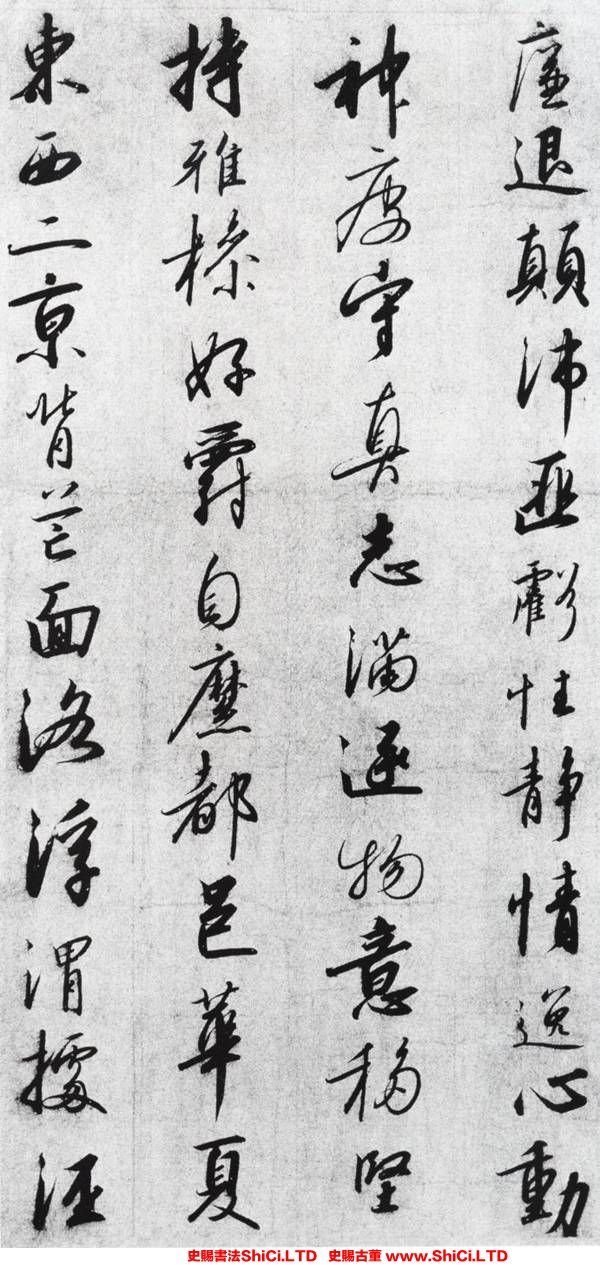 廉退顛沛匪虧性靜情逸心動
神疲守真志滿逐物意移堅
持雅操好爵自縻都邑華夏
東西二京背芒面洛浮渭據涇
史賜書法ShiCi.LTD 史賜古董 www.ShiCi.LTD